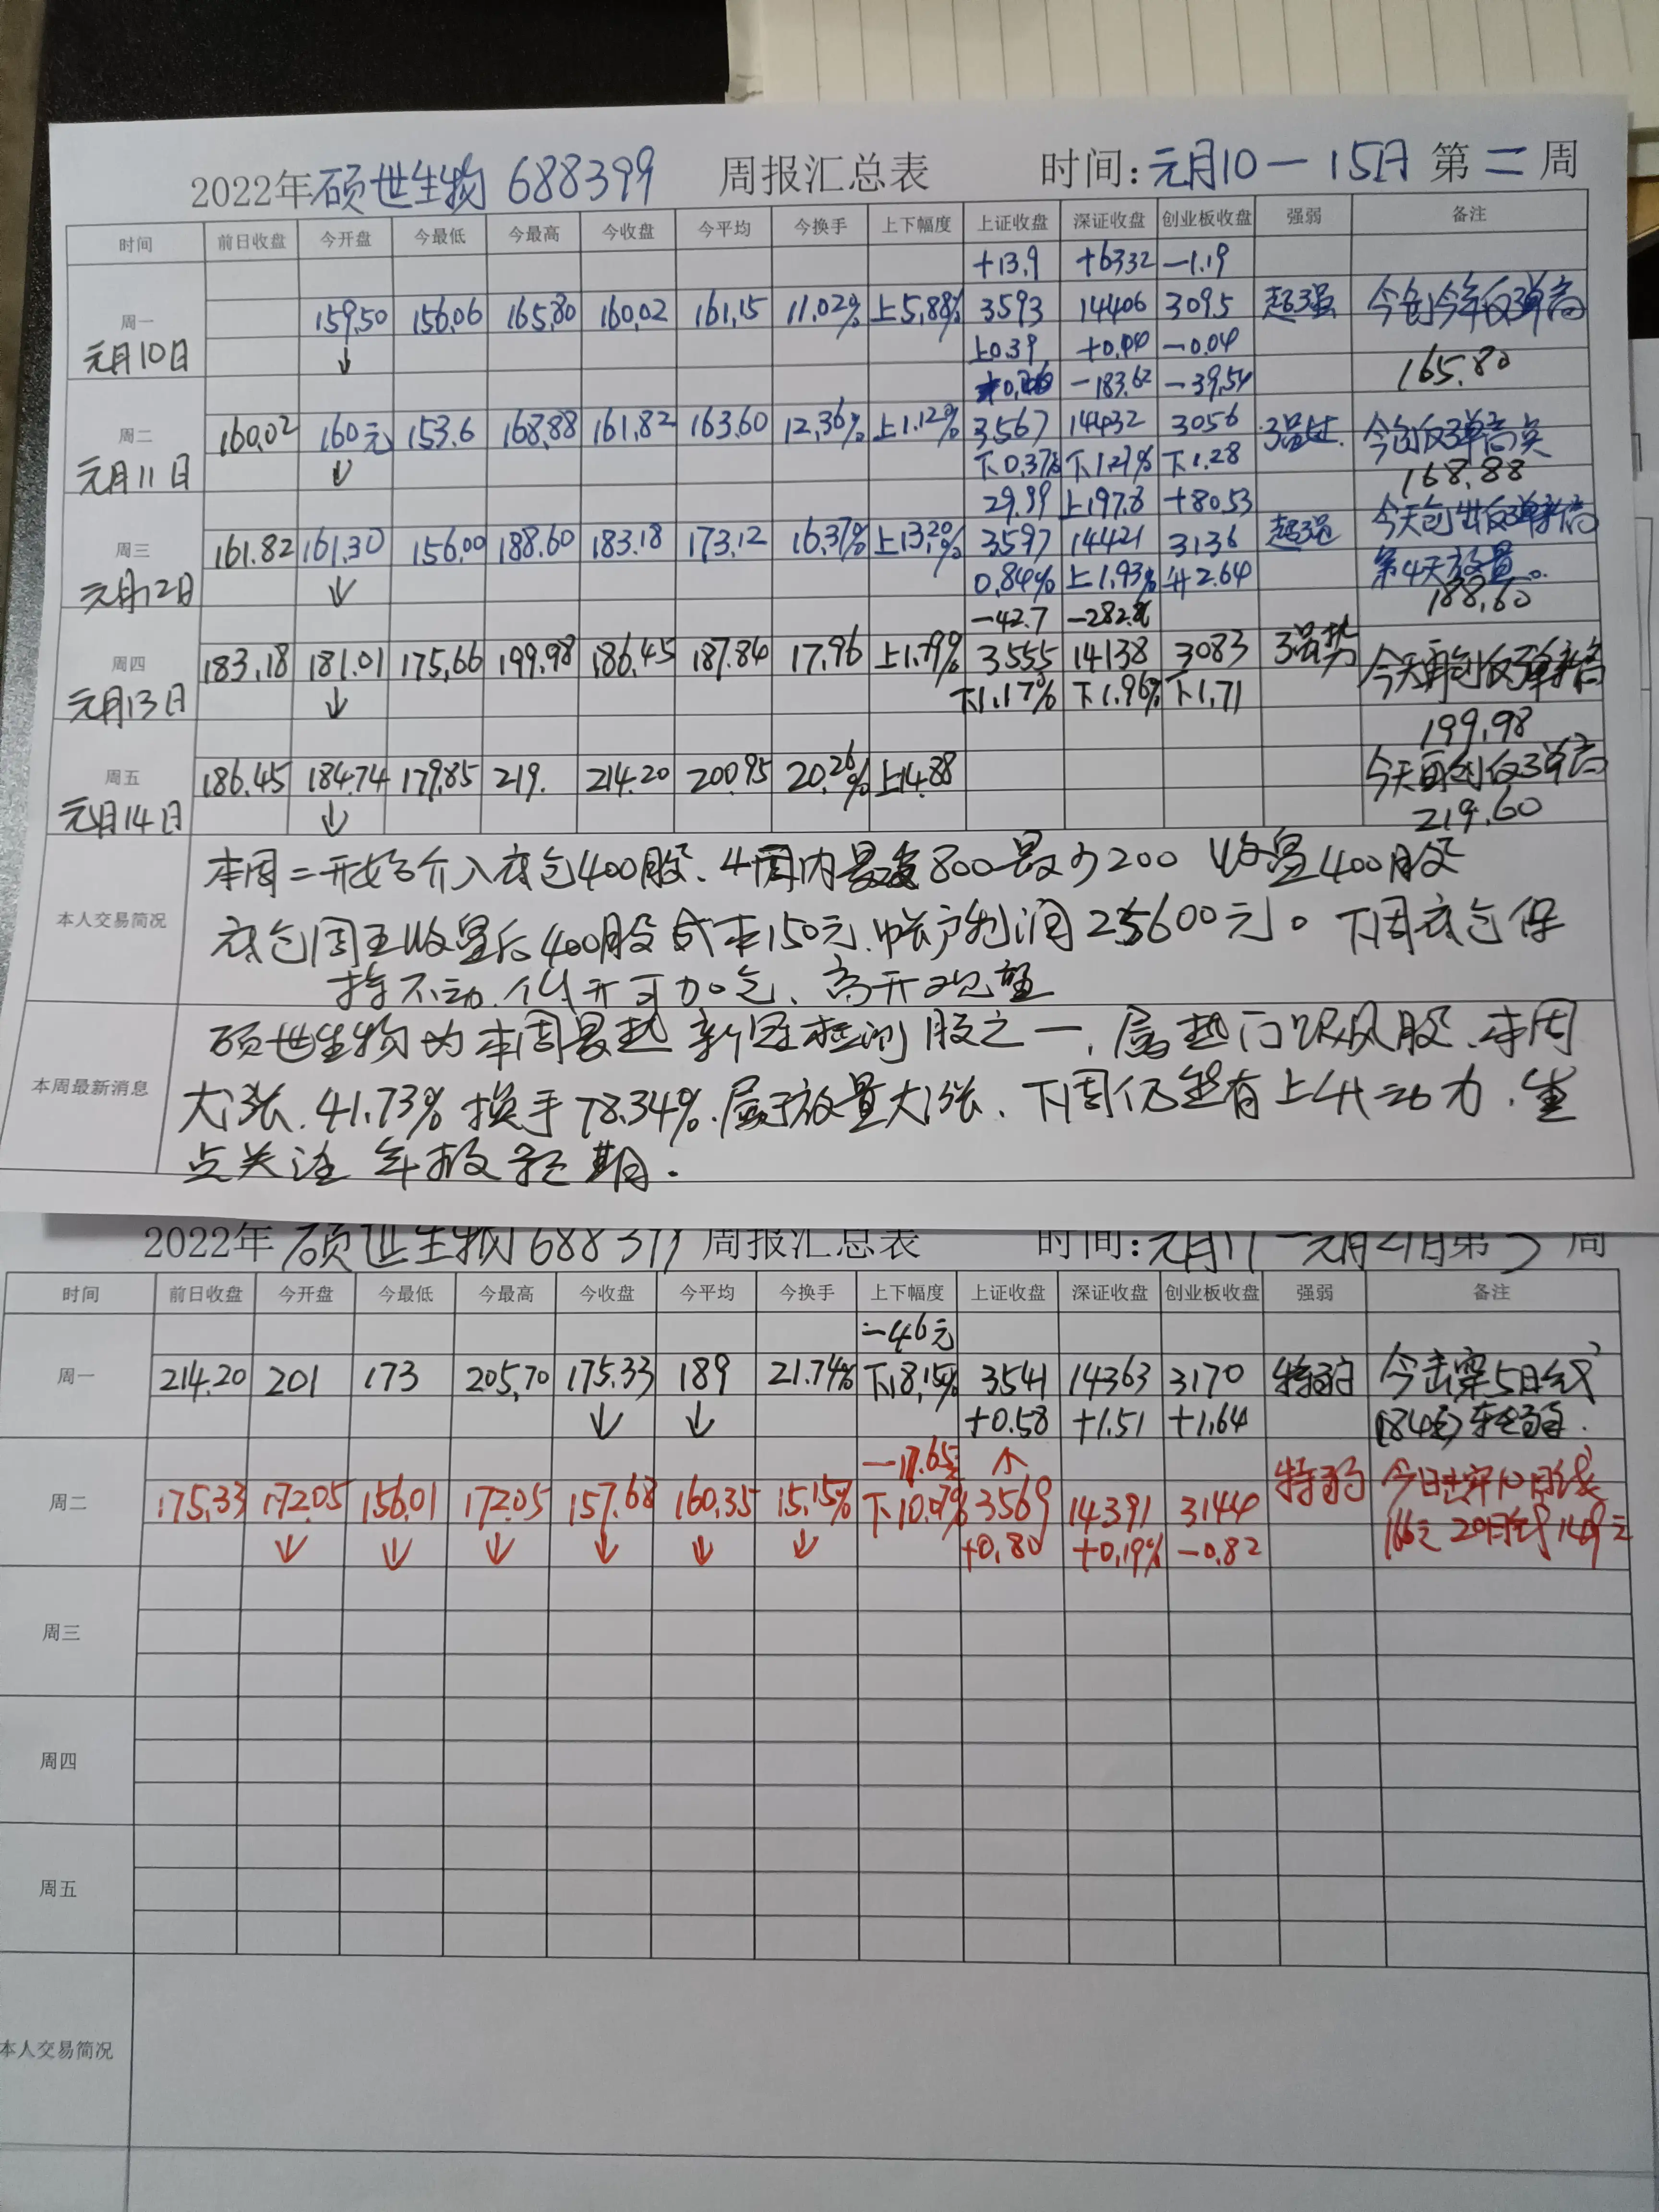 2022年硕世生物 688399 周报汇总表 时间:元月10-15日 第二周
时间 前日收盘 今开盘 今最低 今最高 今收盘 今平均 今换手 上下幅度 上证收盘 深证收盘 创业板收盘 强弱 备注
+13.9 +63.32 -1.19
周一 159.50 156.06 165.80 160.02 161.15 11.02% 上5.88% 3593 14406 3095 超强 今创今年反弹高
元月10日 ↓ 上0.39 +0.44 -0.04 165.80
-183.62 -39.54
周二 160.02 160元 153.6 168.88 161.82 163.60 12.36% 上1.12% 3567 14432 3056 今创反弹高点
元月11日 ↓ 下0.37% 下1.27% 下1.28 168.88
29.99 上197.8 +80.53 今天创出反弹新高
周三 161.82 161.30 156.00 188.60 183.18 173.12 16.37% 上13.20% 3597 14421 3136 超强 第4天放量
元月12日 ↓ 0.84% 上1.93% 升2.64 188.60
-42.7 -282.8
周四 183.18 181.01 175.66 199.98 186.45 187.84 17.96 上1.79% 3555 14138 3083 强势 今天再创反弹新高
元月13日 ↓ 下1.17% 下1.96% 下1.71 199.98
周五 186.45 184.74 179.85 219. 214.20 200.95 20.26% 上14.88 今天再创反弹高
元月14日 ↓ 219.60
本人交易简况
本周二开始介入底仓400股、4周内最高800最少200 收盘400股
底仓周五收盘后400股成本150元、帐户利润25600元。下周底仓保
持不动、低开可加仓、高开观望
本周最新消息
硕世生物为本周最热新冠检测股之一、属热门跟风股、本周
大涨、41.73% 换手78.34%、属于放量大涨、下周仍然有上升动力、重
点关注年报预期.
2022年硕世生物 688399 周报汇总表 时间:元月17-元月21日第3周
时间 前日收盘 今开盘 今最低 今最高 今收盘 今平均 今换手 上下幅度 上证收盘 深证收盘 创业板收盘 强弱 备注
-46元
周一 214.20 201 173 205.70 175.33 189 21.74% 下18.15% 3541 14363 3170 特弱 今击穿5日线
↓ ↓ +0.58 +1.51 +1.64 184元 转弱.
-17.65元 ↑
周二 175.33 172.05 156.01 172.05 157.68 160.35 15.15% 下10.07% 3569 14391 3144 特弱 今日击穿10日线
↓ ↓ ↓ ↓ ↓ ↓ +0.80 +0.19% -0.82 166元 20日线149元
周三
周四
周五
本人交易简况